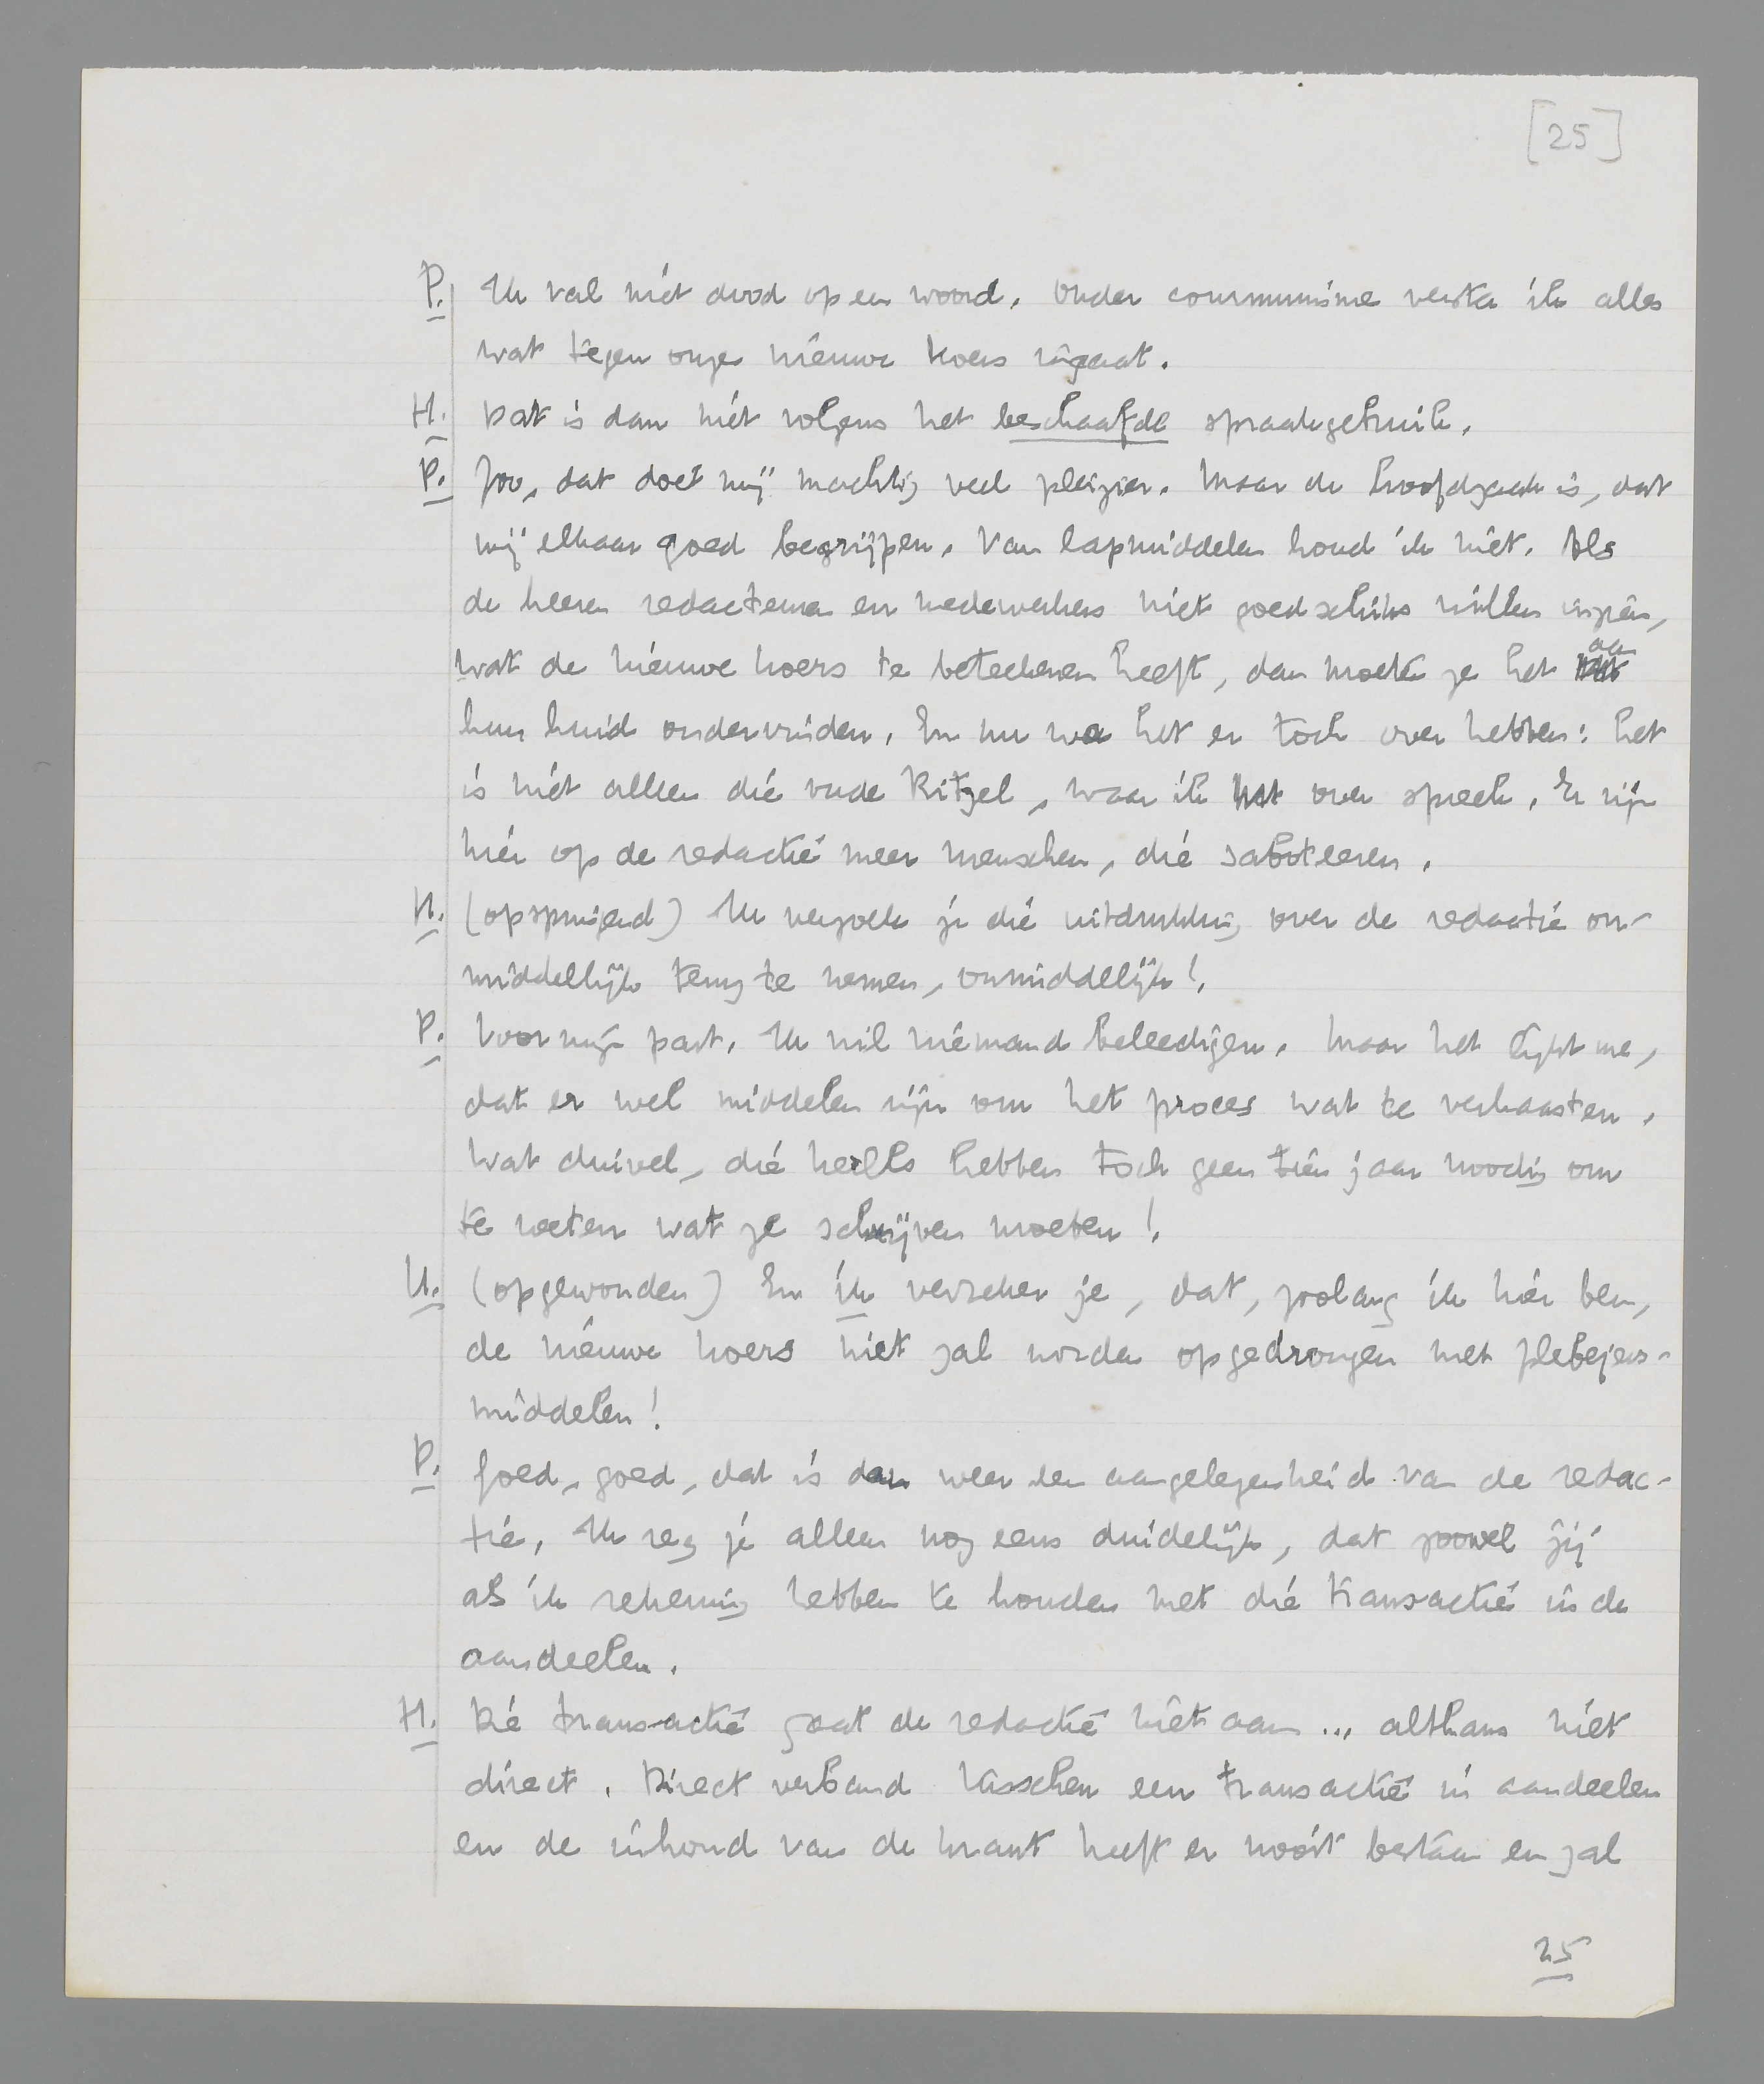 [25]
P. Ik val niet dood op een woord. Onder communisme versta ik alles
wat tegen onze nieuwe koers ingaat.
H. Dat is dan niet volgens het beschaafde spraakgebruik.
P. Zoo, dat doet mij machtig veel pleizier. Maar de hoofdzaak is, dat
wij elkaar goed begrijpen. Van lapmiddelen houd ik niet. Als
de heeren redacteuren en medewerkers niet goedschiks willen inzien,
wat de nieuwe koers te beteekenen heeft, dan moeten ze het aan
hun huid ondervinden. En nu we het er toch over hebben: het
is niet alleen die oude Kitzel, waar ik over spreek. Er zijn
hier op de redactie meer menschen, die saboteeren.
H. (opspringend) Ik verzoek je die uitdrukking over de redactie on-
middellijk terug te nemen, onmiddelijk!
P. Voor mijn part. Ik wil niemand beleedigen. Maar het lijkt me,
dat er wel middelen zijn om het proces wat te verhaasten.
Wat duivel, die kerels hebben toch geen tien jaar noodig om
te weten wat ze schrijven moeten!
H. (opgewonden) En ik verzeker je, dat, zoolang ik hier ben,
de nieuwe koers niet zal worden opgedrongen met plebejers-
middelen!
P. Goed, goed, dat is dan weer een aangelegenheid van de redac-
tie. Ik zeg je alleen nog eens duidelijk, dat zoowel jij
als ik rekening hebben te houden met die transactie in de
aandeelen.
H. Die transactie gaat de redactie niet aan ... althans niet
direct. Direct verband tusschen een transactie in aandeelen
en de inhoud van de krant heeft er nooit bestaan en zal
25